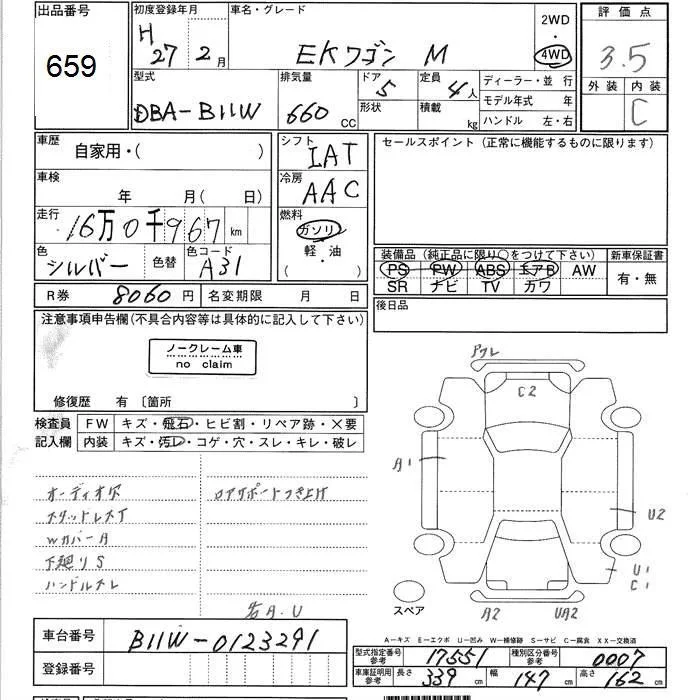 出品番号
659
初度登録年月
H27 2月
車名・グレード
EKワゴン M
2WD
・
4WD
評価点
3.5
外装 内装
C
型式
DBA-B11W
排気量
660 CC
ドア
5
形状
定員
4人
積載
kg
ディーラー・並 行
モデル年式 年
ハンドル 左・右
車歴
自家用・( )
車検
年 月(日 )
走行
16万0千967 km
色
シルバー
色替
色コード
A31
シフト
IAT
冷房
AAC
燃料
ガソリン
軽・油
( )
セールスポイント (正常に機能するものに限ります)
装備品 (純正品に限り○をつけて下さい)
PS PW ABS エアB AW
SR ナビ TV カワ
新車保証書
有・無
R券 8060円
名変期限 月 日
後日品
注意事項申告欄(不具合内容等は具体的に記入して下さい)
ノークレーム車
no claim
修復歴 有 〔箇所 〕
検査員
記入欄
FW キズ・飛石・ヒビ割・リペア跡・×要
内装 キズ・汚レ・コゲ・穴・スレ・キレ・破レ
Wカバー A
下廻りS
ハンドルスレ
ロアサポートつき上げ
A.U
C2
A1
U2
U1
C1
A2
UA2
スペア
車台番号
B11W-0123291
登録番号
A-キズ E-エクボ U-凹み W-補修跡 S-サビ C-腐食 XX-交換済
型式指定番号
参考
17551
種別区分番号
参考
0007
車庫証明用
参考
長さ 339 cm
幅 147 cm
高さ 162 cm